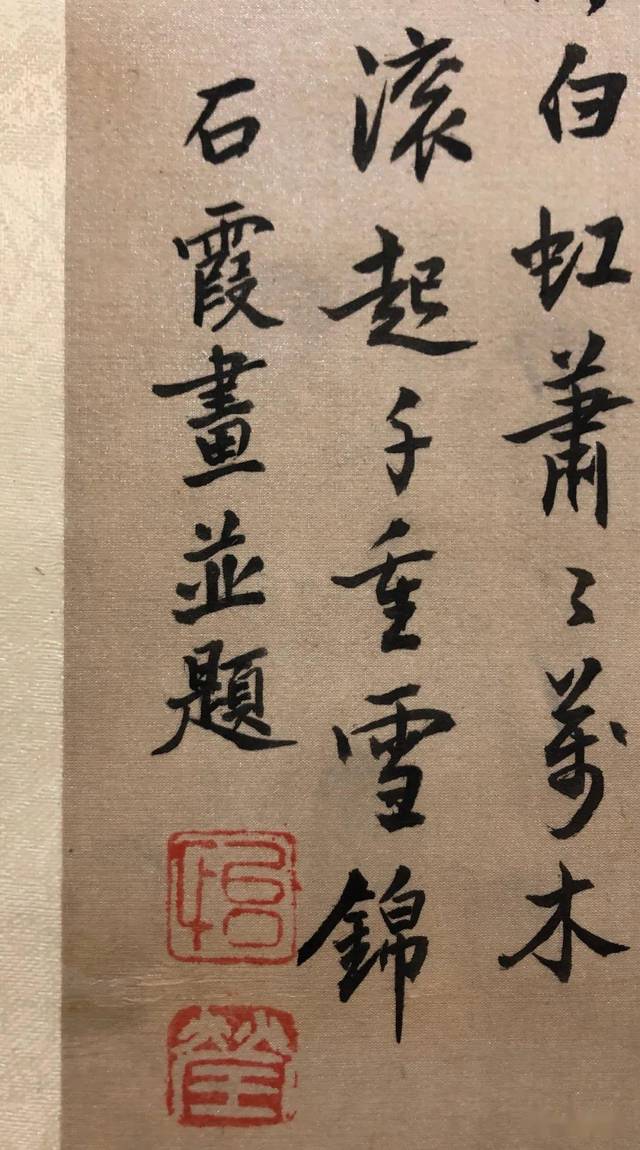 白虹蕭〻萬木
滚起千重雪錦
石霞畫並題